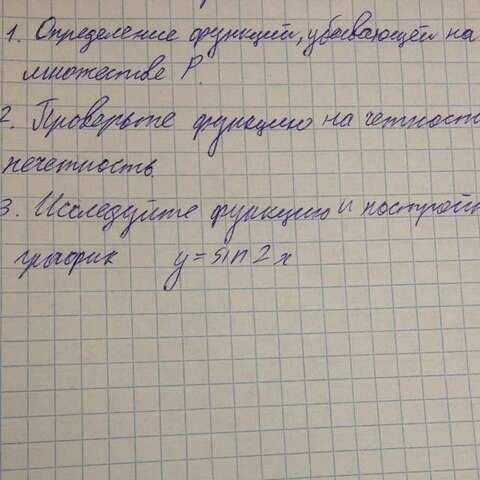 1. Определение функции, убывающей на
множестве P.
2. Проверьте функцию на четность
нечетность
3. Исследуйте функцию и построй
график y = sin 2x